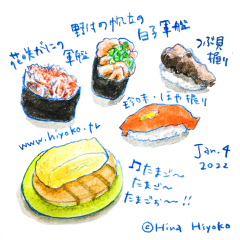 花咲がにの
軍艦
野付の帆立の
白子軍艦
つぶ貝
握り
珍味・はや握り
www.hiyoko.tv
Jan. 4
2022
♫たまご〜
たまご〜
たまごぉ〜!!
©Hina Hiyoko